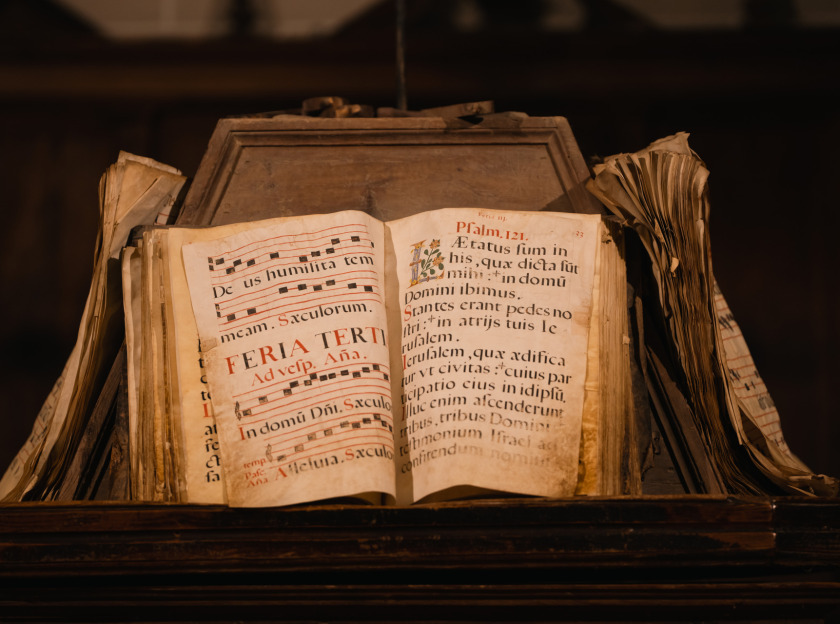 De us humilita tem
meam. Sæculorum.
FERIA TERTI
Ad veſp. Aña.
In domū Dñi. Sæculo
temp.
Paſc.
Aña
Alleluia. Sæculo
Pſalm. 121.
LÆtatus ſum in
his, quæ dicta ſūt
mihi :⁺ in domū
Domini ibimus.
Stantes erant pedes no
ſtri :⁺ in atrijs tuis Ie
ruſalem.
Ieruſalem, quæ ædifica
tur vt civitas :⁺ cuius par
ticipatio eius in idipſū.
Illuc enim aſcenderunt
tribus, tribus Domini
teſtimonium Iſrael ad
confitendum nomini